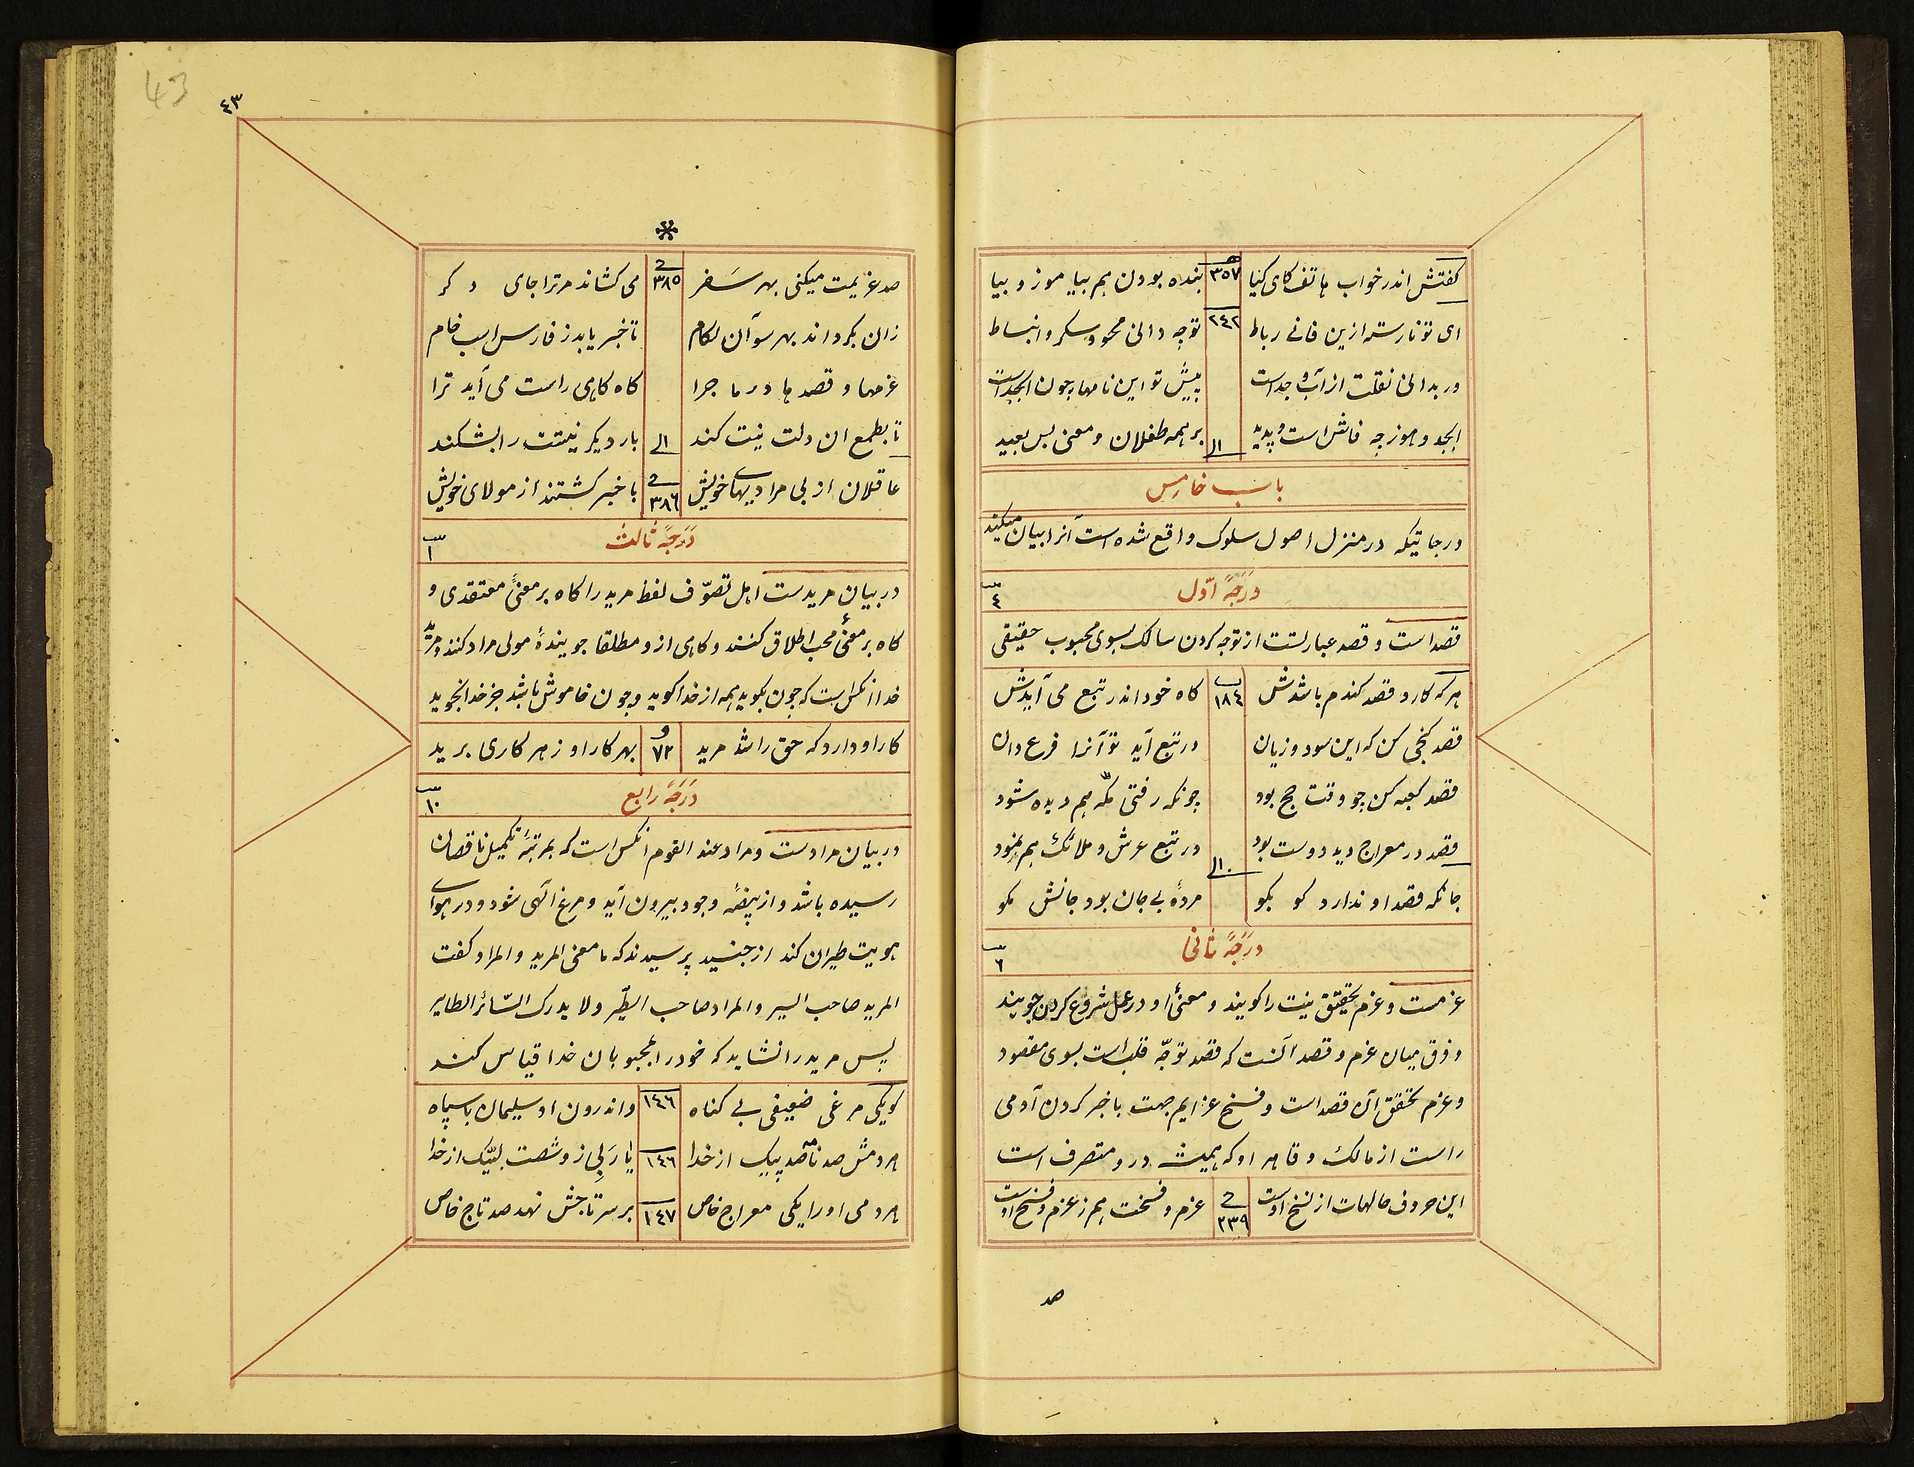 گفتش اندر خواب هاتف کای کیا ٣٥٧ بنده بودن هم بیا موز و بیا
ای تو نارسته ازین فانی رباط ٢٤٢ توچه دانی محو و سکر و انبساط
ور بدانی نقلت از آب و جداست پیش تو این نامها چون ابجداست
ابجد و هوز چه فاش است و پدید الی بر همه طفلان و معنی بس بعید
باب خامس
درجاتیکه در منزل اصول سلوک واقع شده است آنرا بیان میکند
درجهٔ اوّل ٤
قصداست و قصد عبارتست از توجه کردن سالک بسوی محبوب حقیقی
هرکه کارد قصد کندم باشدش ١٨٤ کاه خود اندر تبع می آیدش
قصد کنجی کن که این سود و زیان در تبع آید تو آنرا فرع دان
قصد کعبه کن چو وقت حج بود چونکه رفتی مکّه هم دیده شود
قصد در معراج دید دوست بود الی در تبع عرش و ملائک هم نمود
جانکه قصد او ندارد کو بکو مردهٔ بی جان بود جانش مکو
درجهٔ ثانی ٦
عزمست و عزم تحقیق نیت را کویند و معنیٔ او در عمل شروع کردن جویند
و فرق میان عزم و قصد آنست که قصد توجّه قلب است بسوی مقصود
و عزم تحقق آن قصد است و فسخ عزایم جهت با خبر کردن آدمی
راست از مالک و قاهر او که همیشه درو متصرف است
این حروف حالهات از نسخ اوست ٢٣٩ عزم و فسخت هم ز عزم و فسخ اوست
صد
٤٣
43
صد عزیمت میکنی بهر سَفر ٣٨٥ می کشاند مر ترا جای دکر
زان بکرداند بهر سو آن لکام تا خبر یابد ز فارس اسب خام
عزمها و قصدها در ماجرا کاه کاهی راست می آید ترا
تا بطمع ان دلت نیت کند الی بار دیکر نیتت را بشکند
عاقلان از بی مرادیهای خویش ٣٨٦ با خبر کشتند از مولای خویش
درجهٔ ثالث ١
در بیان مریدست اهل تصوّف لفظ مرید را کاه بر معنیٔ معتقدی و
کاه بر معنیٔ محب اطلاق کنند و کاهی ازو مطلقا جویندهٔ مولی مراد کنند و مرید
خدا انکس است که چون بکوید همه از خدا کوید و چون خاموش باشد جز خدا نجوید
کار او دارد که حق را شد مرید ٧٢ بهر کار او ز هر کاری برید
درجهٔ رابع ١٠
در بیان مرادست و مراد عند القوم انکس است که بمرتبهٔ تکمیل ناقصان
رسیده باشد و از بیضهٔ وجود بیرون آید و مرغ الهی شود و در هوای
هویت طیران کند از جنید پرسیدند که ما معنی المرید و المراد کفت
المرید صاحب السیر و المراد صاحب الطیّر و لا یدرک السّائر الطایر
پس مرید را نشاید که خود را بمحبوبان خدا قیاس کند
کو یکی مرغی ضعیفی بی کناه ١٤٦ و اندرون او سلیمان با سپاه
هردمش صد نامه صد پیک از خدا ١٤٦ یا رَبی زو شصت لبّیک از خدا
هردمی او را یکی معراج خاص ١٤٧ بر سر تاجش نهد صد تاج خاص